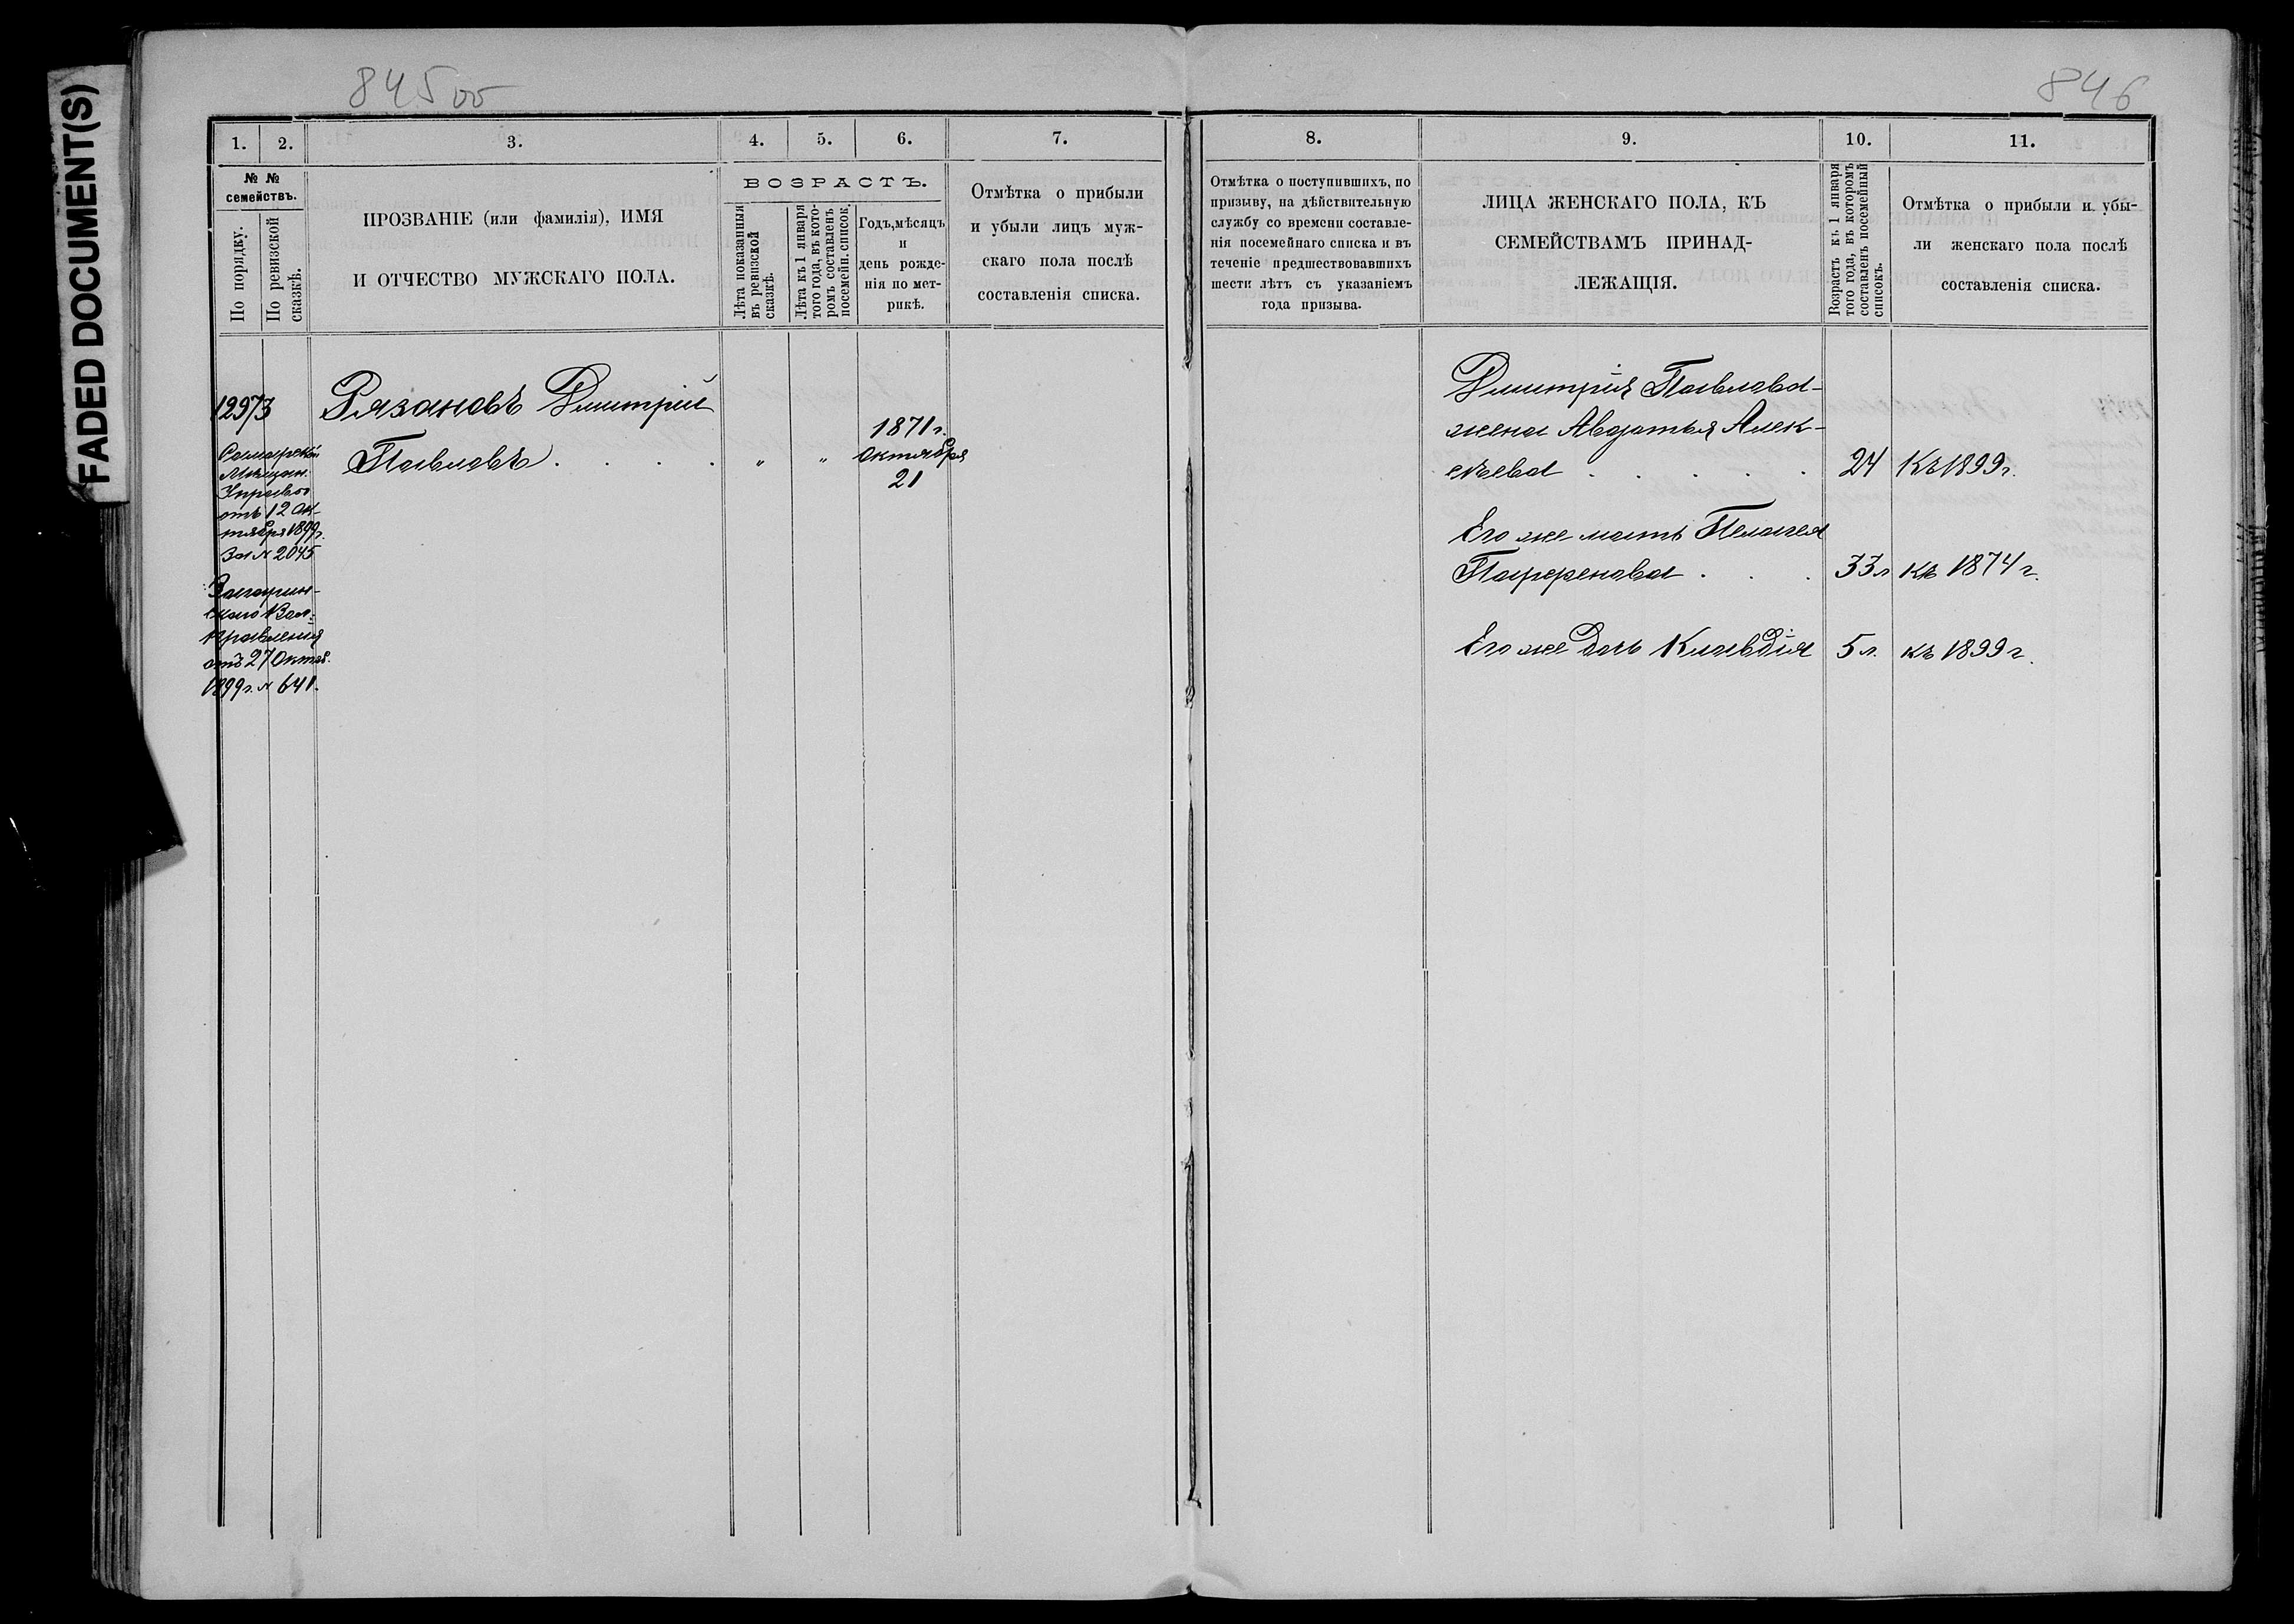 FADED DOCUMENT(S)
845об
846
1. 2. 3. 4. 5. 6. 7. 8. 9. 10. 11.
№ № семействъ.
По порядку.
По ревизской сказкѣ.
ПРОЗВАНІЕ (или фамилія), ИМЯ
И ОТЧЕСТВО МУЖСКАГО ПОЛА.
ВОЗРАСТЪ.
Лѣта показанныя
въ ревизской
сказкѣ.
Лѣта къ 1 января
того года, въ кото-
ромъ составленъ
посемейн. список.
Годъ, мѣсяцъ
и
день рожде-
нія по мет-
рикѣ.
Отмѣтка о прибыли
и убыли лицъ муж-
скаго пола послѣ
составленія списка.
Отмѣтка о поступившихъ, по
призыву, на дѣйствительную
службу со времени составле-
нія посемейнаго списка и въ
теченіе предшествовавшихъ
шести лѣтъ съ указаніемъ
года призыва.
ЛИЦА ЖЕНСКАГО ПОЛА, КЪ
СЕМЕЙСТВАМЪ ПРИНАД-
ЛЕЖАЩІЯ.
Возрастъ къ 1 января
того года, въ которомъ
составленъ посемейный
списокъ.
Отмѣтка о прибыли и убы-
ли женскаго пола послѣ
составленія списка.
12973
Самарской
Мѣщан.
Управы
отъ 12 Ок-
тября 1899г.
За № 2045
скаго Вол.
Правленія
отъ 27 Октяб.
1899г. № 641.
Рязановъ Дмитрій
Павловъ . . . . " "
1871 г.
Октября
21
Дмитрія Павлова
жена Авдотья Алек-
сѣева . . . . . 24 Къ 1899г.
Его же мать Пелагея
Парфенова . . . 33 л къ 1874 г.
Его же Дочь Клавдія 5 л. къ 1899 г.